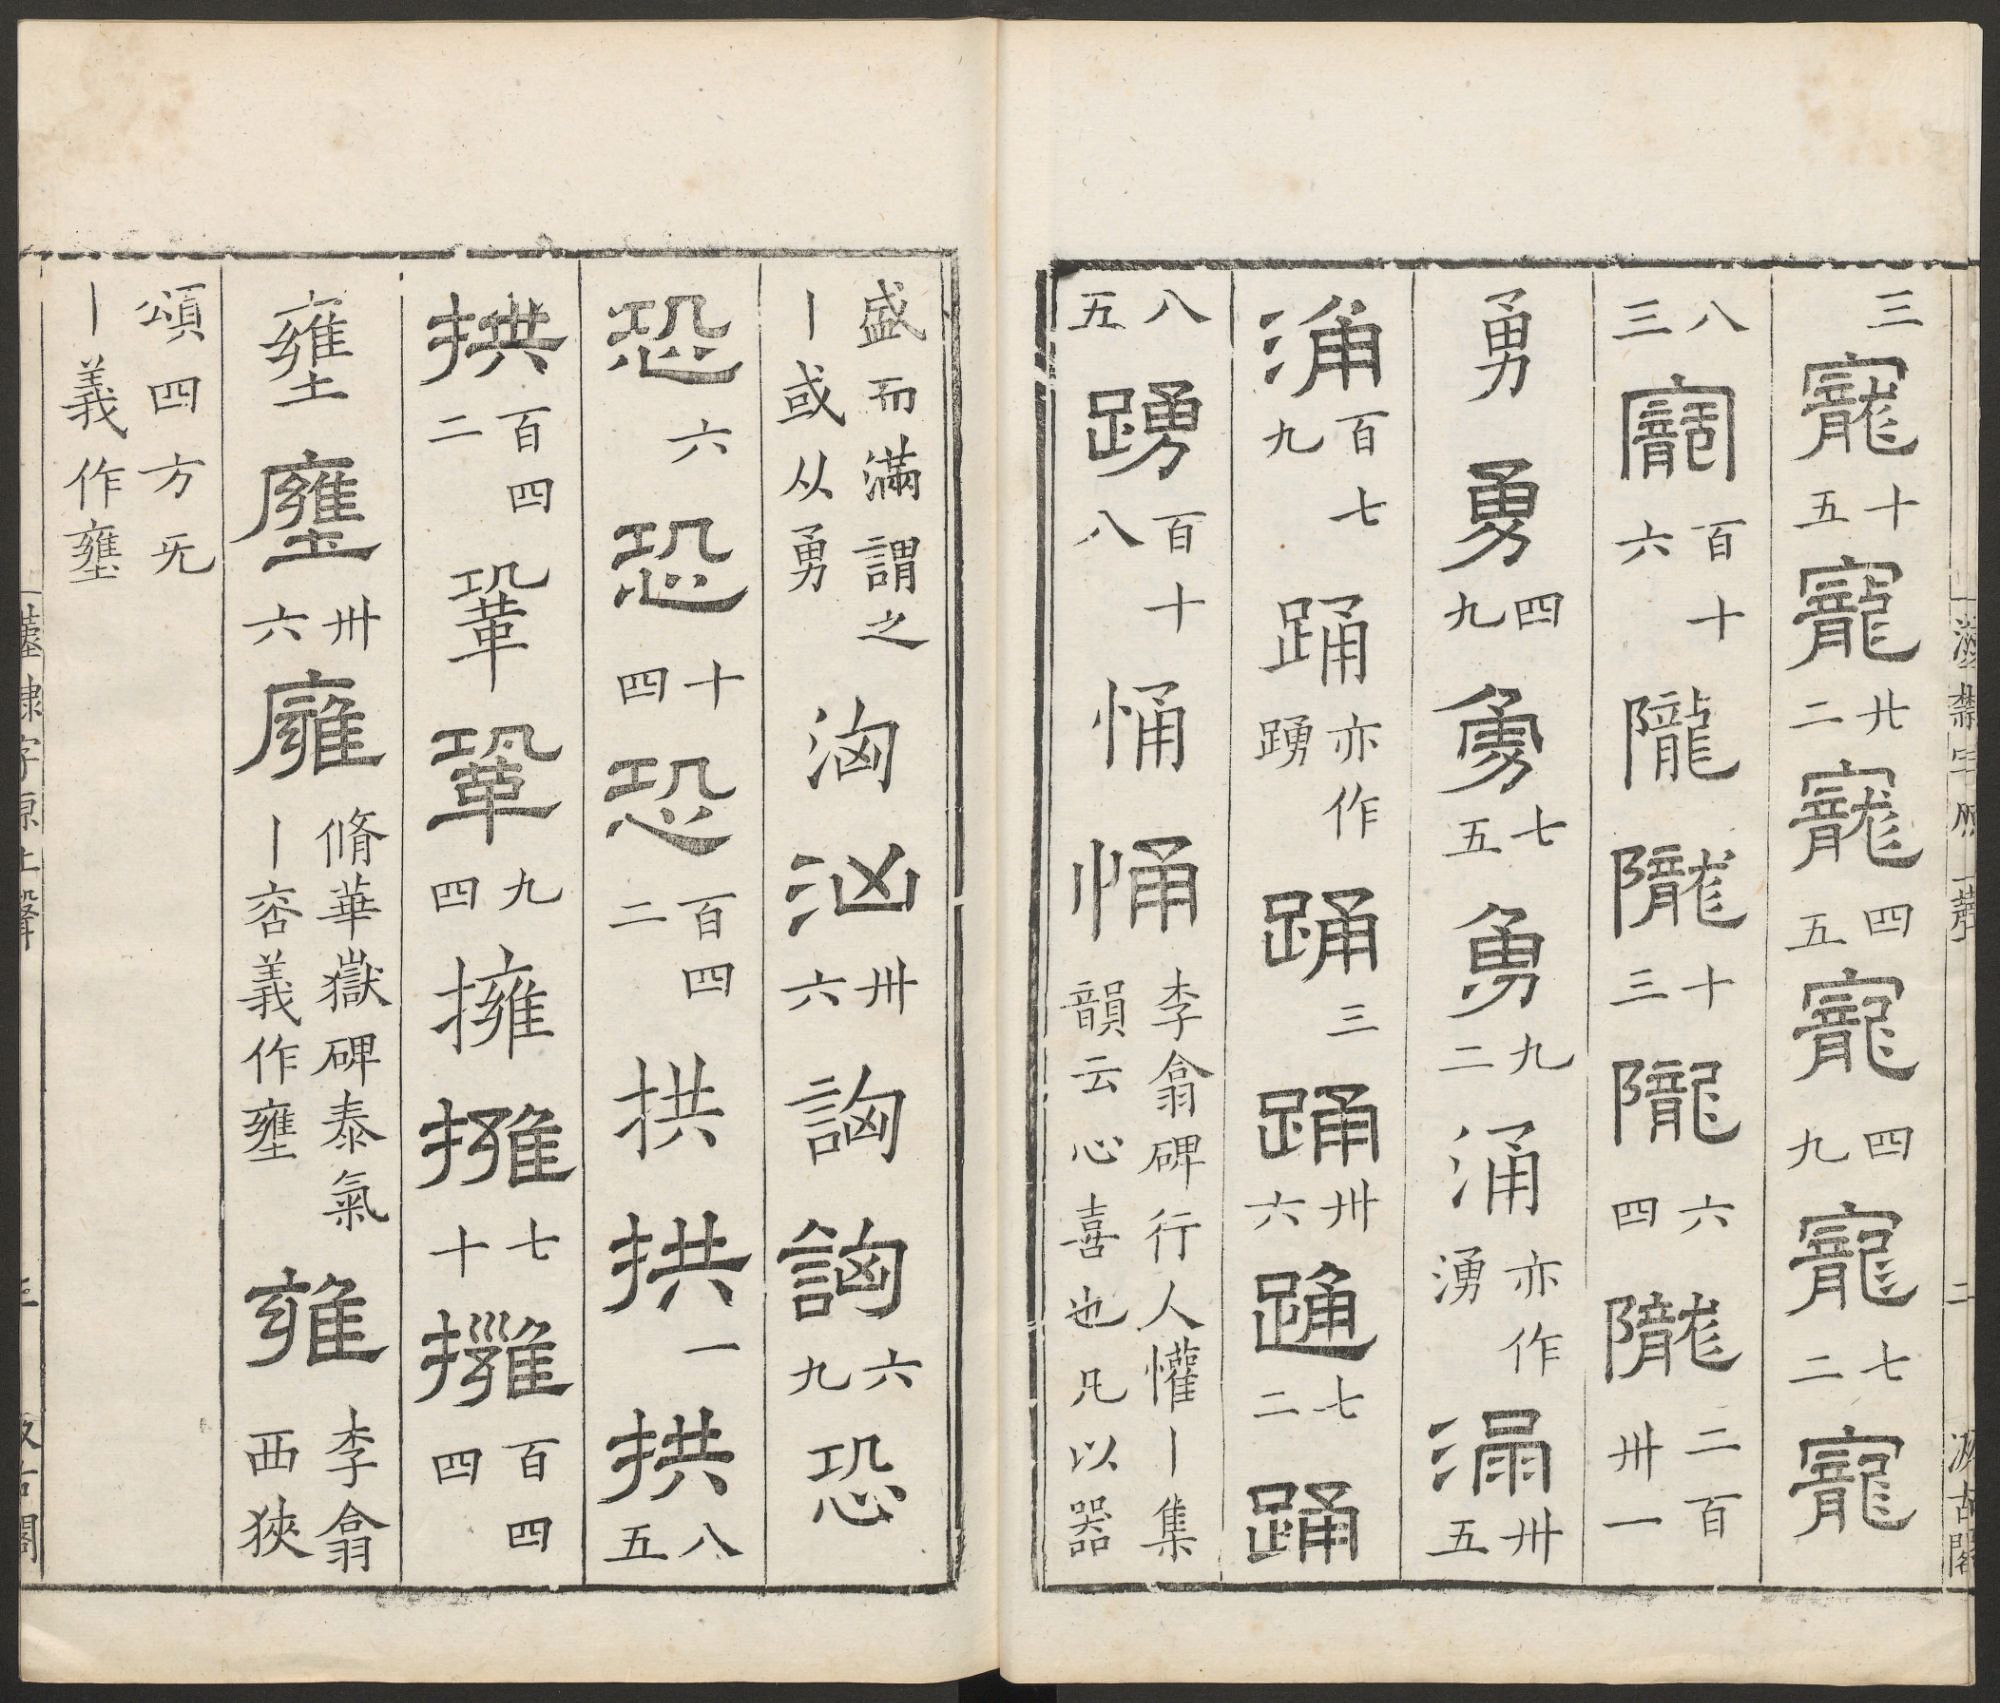 漢隸字原上聲 二 汲古閣
三寵十五寵廿二寵四五寵四九寵七二寵
八三寵百十六隴隴十三隴六四隴二百卅一
勇勇四九勇七五勇九二涌亦作湧涌卅五
涌百七九踊亦作踴踊三踊卅六踊七二踊
八五踴百十八悀悀李翕碑行人懽丨集韻云心喜也凡以器
盛而滿謂之丨或从勇洶洶卅六詾詾六九恐
恐六恐十四恐百四二拱拱一拱八五
拱百四二鞏鞏九四擁擁七十擁百四四
壅壅卅六廱脩華嶽碑泰氣丨義作壅雍李翕西狹
頌四方旡丨義作壅
漢隸字原上聲 三 汲古閣